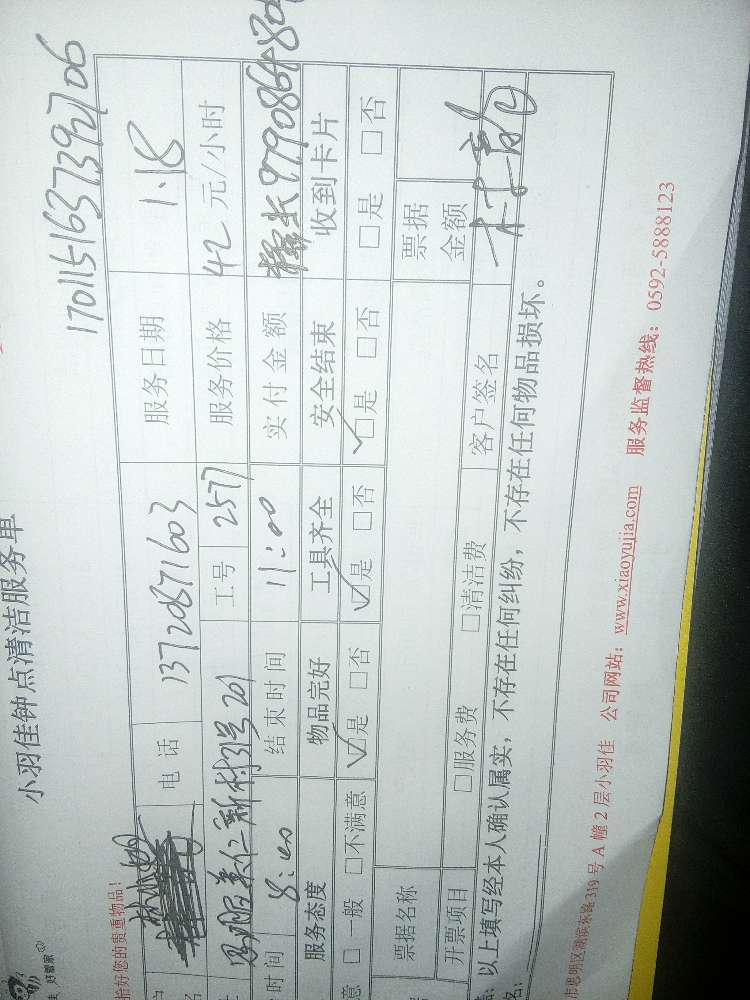 好管家
小羽佳钟点清洁服务单
1701151637392706
拾好您的贵重物品!
电话 13720871603 服务日期 1.18
新村3号201 工号 2577 服务价格 42 元/小时
时间 8:00 结束时间 11:00 实付金额
服务态度 物品完好 工具齐全 安全结束 收到卡片
意 □ 一般 □不满意 ☑是 □否 ☑是 □否 ☑是 □否 □是 □否
票据名称 票据金额
开票项目 □服务费 □清洁费 客户签名
以上填写经本人确认属实,不存在任何纠纷,不存在任何物品损坏。
名:
市思明区湖滨东路 319 号 A 幢 2 层小羽佳 公司网站:www.xiaoyujia.com 服务监督热线:0592-5888123